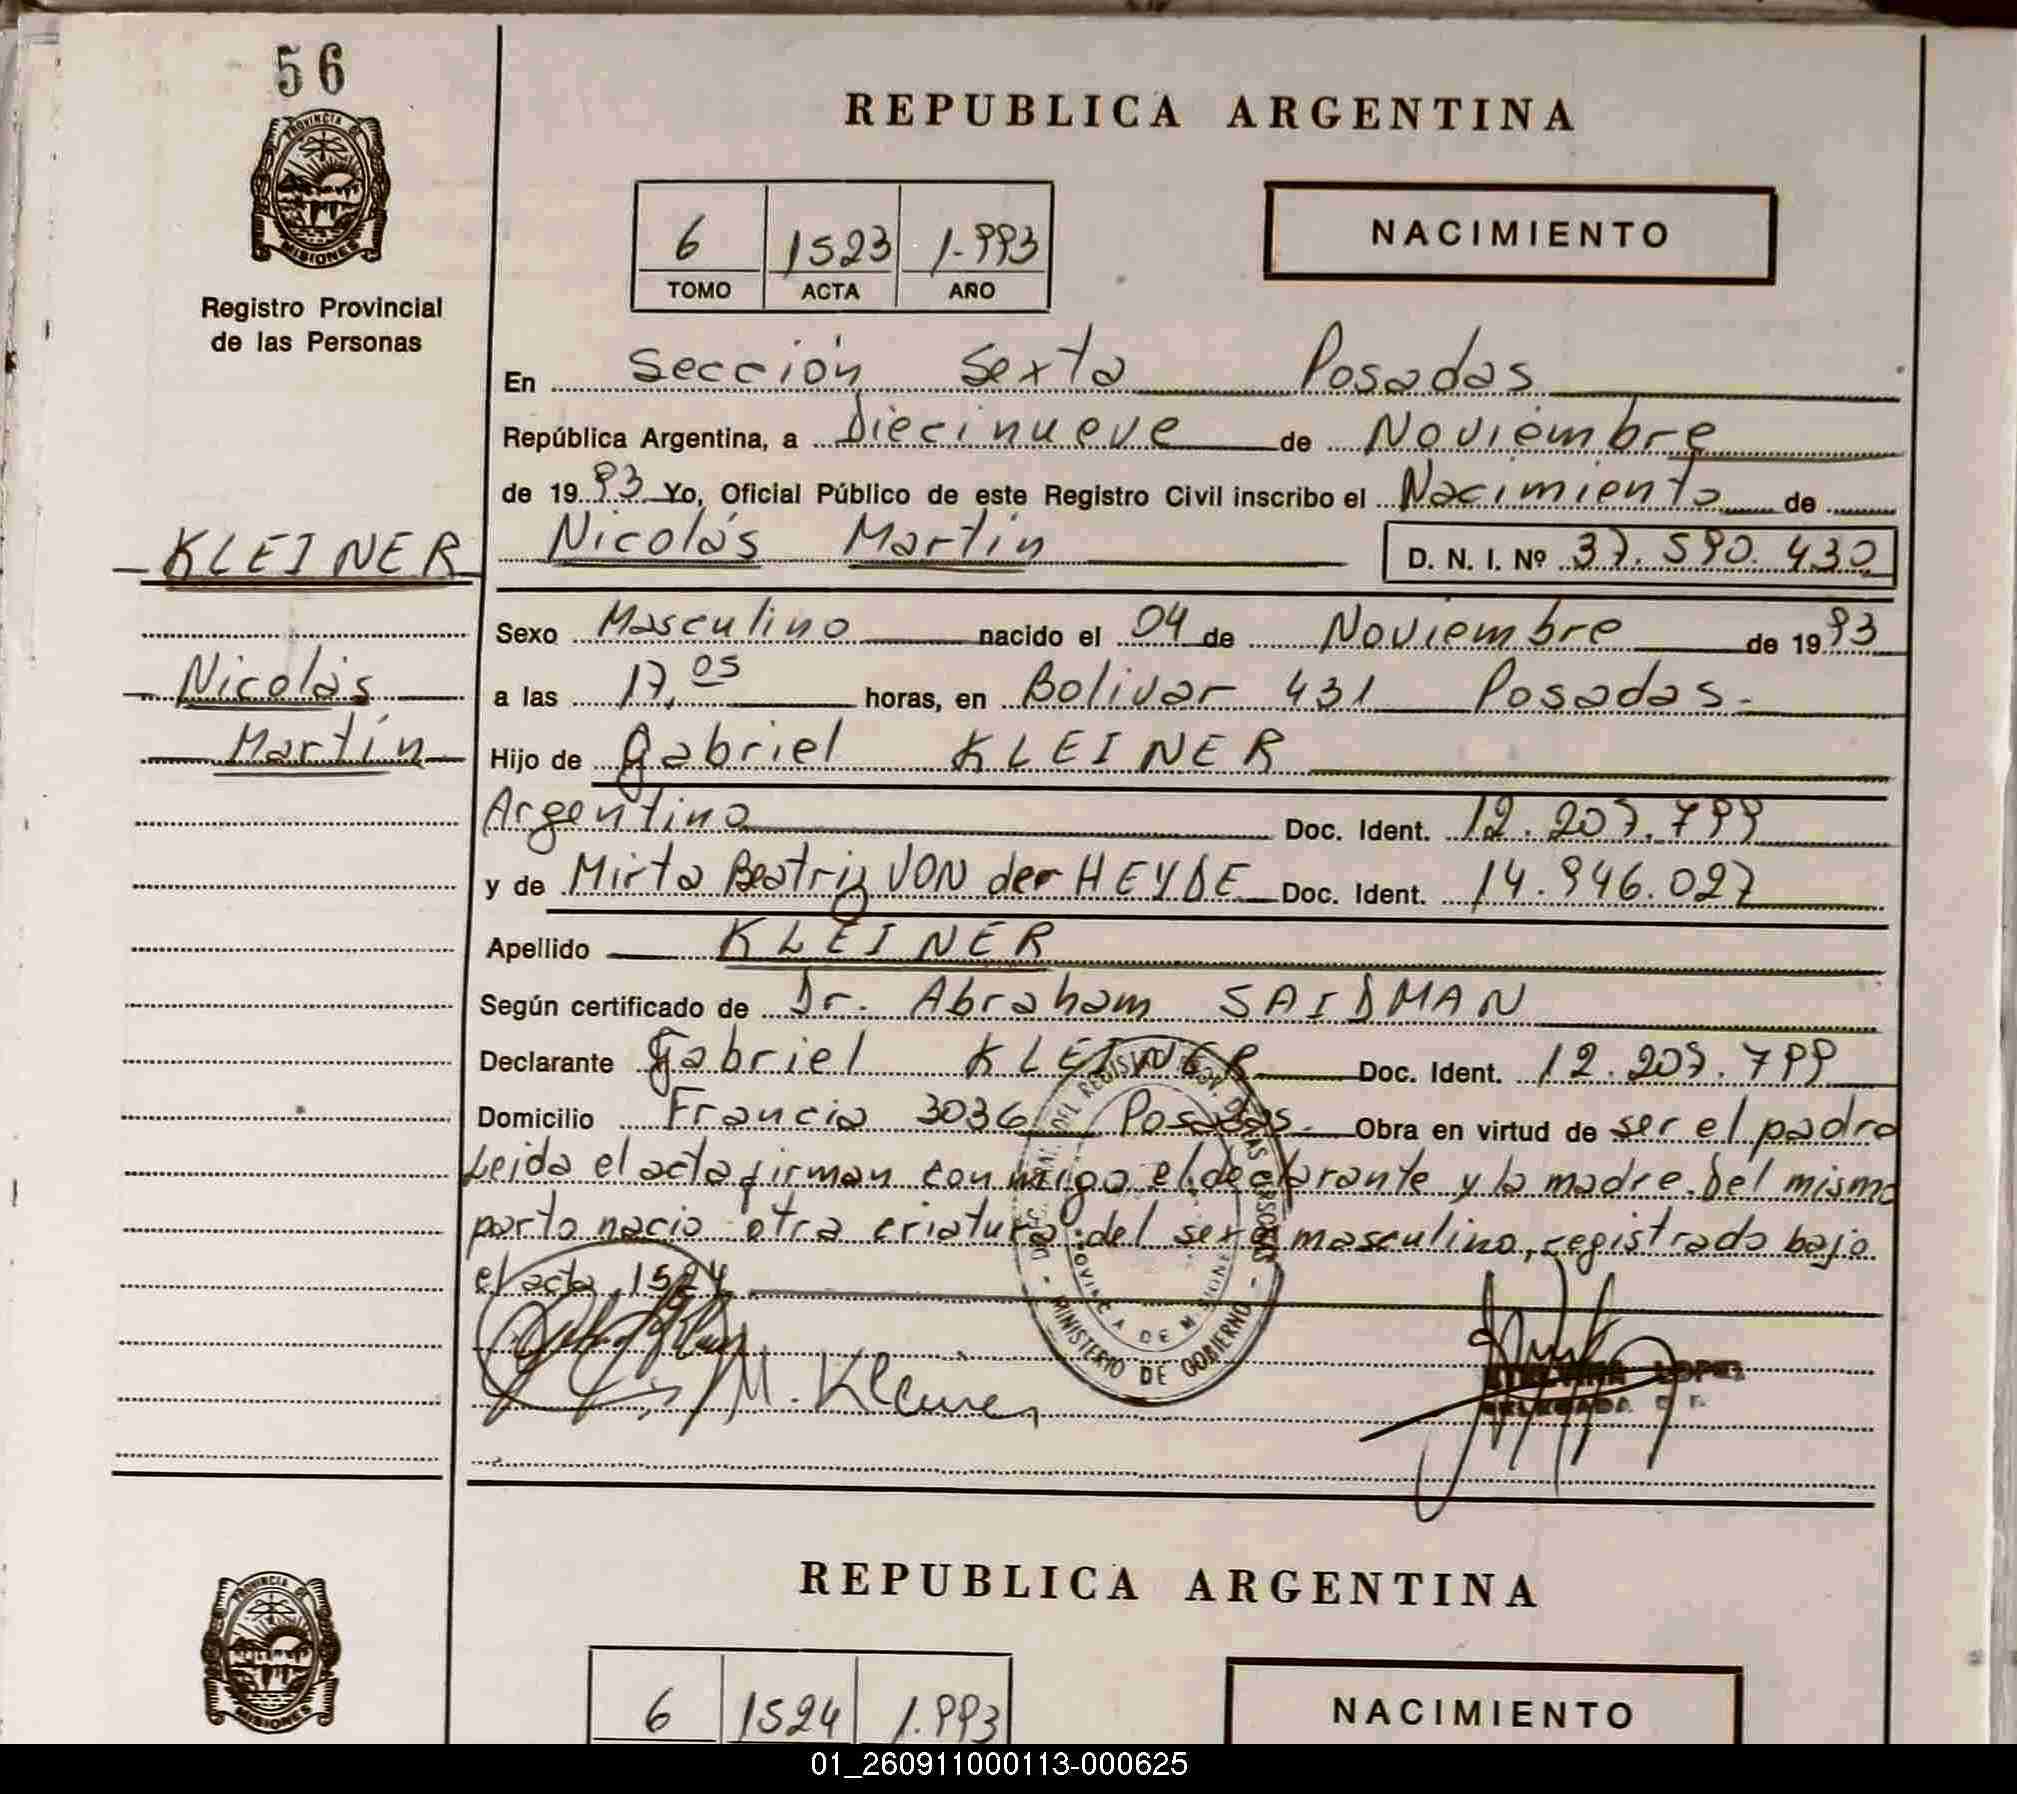 56
PROVINCIA DE
MISIONES
Registro Provincial
de las Personas
REPUBLICA ARGENTINA
6 1523 1.993
TOMO ACTA AÑO
NACIMIENTO
En Sección Sexta Posadas
República Argentina, a Diecinueve de Noviembre
de 1993 Yo, Oficial Público de este Registro Civil inscribo el Nacimiento de
KLEINER
Nicolás Martín D. N. I. Nº 37.590.430
Sexo Masculino nacido el 04 de Noviembre de 1993
Nicolás
a las 17,05 horas, en Bolivar 431 Posadas.
Martín
Hijo de Gabriel KLEINER
Argentino Doc. Ident. 12.207.799
y de Mirta Beatriz VON der HEYDE Doc. Ident. 14.946.027
Apellido KLEINER
Según certificado de Dr. Abraham SAIDMAN
Declarante Gabriel KLEINER Doc. Ident. 12.207.799
Domicilio Francia 3036 Posadas. Obra en virtud de ser el padre
Leida el acta firman conmigo el declarante y la madre. Del mismo
parto nacio otra criatura del sexo masculino, registrado bajo
el acta 1524
MINISTERIO DE GOBIERNO
PROVINCIA DE MISIONES
M. Kleiner
LOPEZ
DELEGADA
REPUBLICA ARGENTINA
PROVINCIA DE
MISIONES
6 1524 1.993
NACIMIENTO
01_260911000113-000625